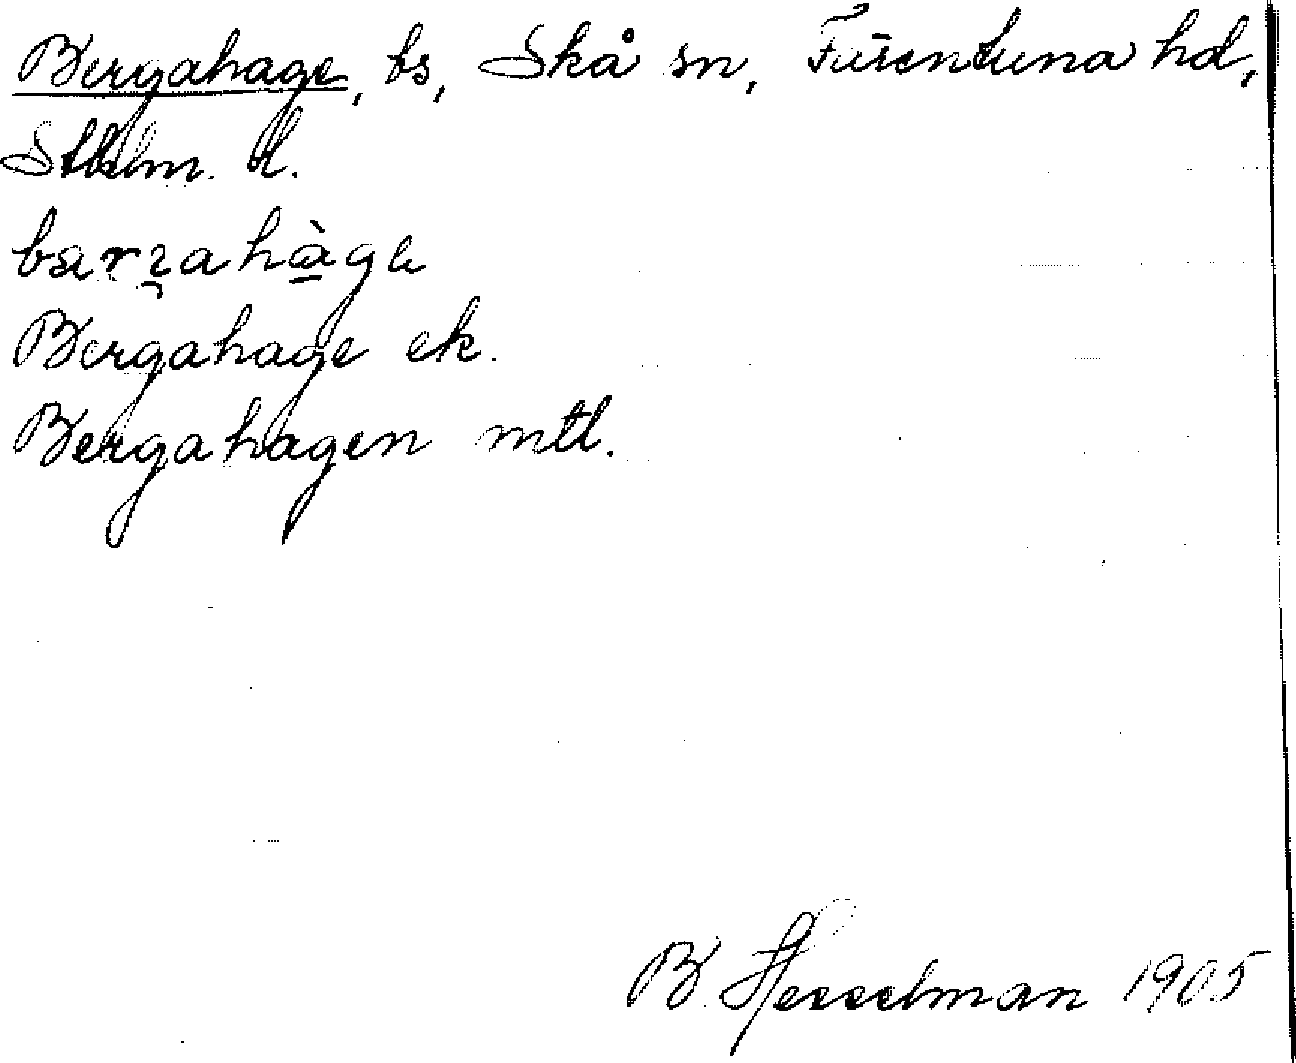 Bergahage, bs, Skå sn, Färentuna hd,
Sthlm. l.
bärɪ̯ahàga
Bergahage ek.
Bergahagen mtl.
B. Hesselman 1905